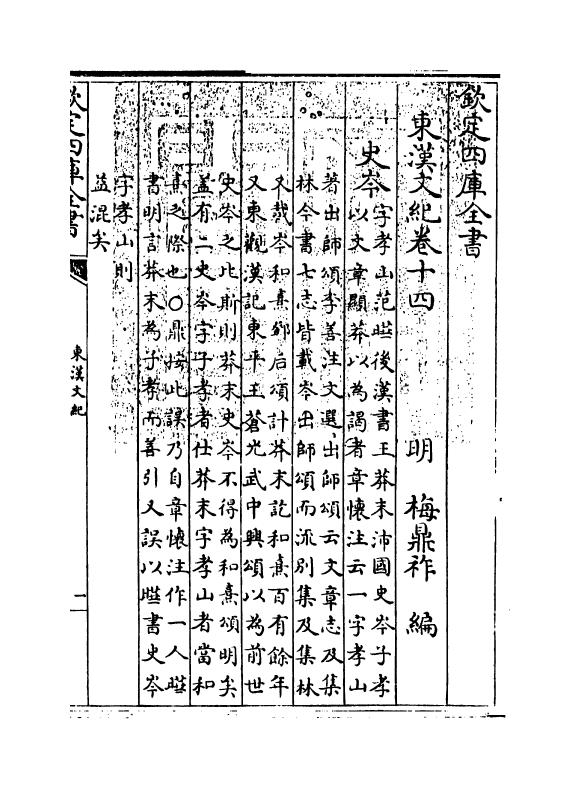 欽定四庫全書
東漢文紀卷十四
明 梅鼎祚 編
史岑
字孝山范曄後漢書王莽末沛國史岑子孝
以文章顯莽以為謁者章懐注云一字孝山
著出師頌李善注文選出師頌云文章志及集
林今書七志皆載岑出師頌而流别集及集林
又載岑和熹鄧后頌計莽末訖和熹百有餘年
又東觀漢記東平王蒼光武中興頌以為前世
史岑之比斯則莽末史岑不得為和熹頌明矣
盖有二史岑字子孝者仕莽末字孝山者當和
熹之際也○鼎按此誤乃自章懐注作一人曄
書明言莽末為子孝而善引又誤以曄書史岑
字孝山則
益混矣
欽定四庫全書
東漢文紀
二